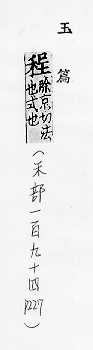 玉篇
程除京切法也式也(禾部一百九十四P227)